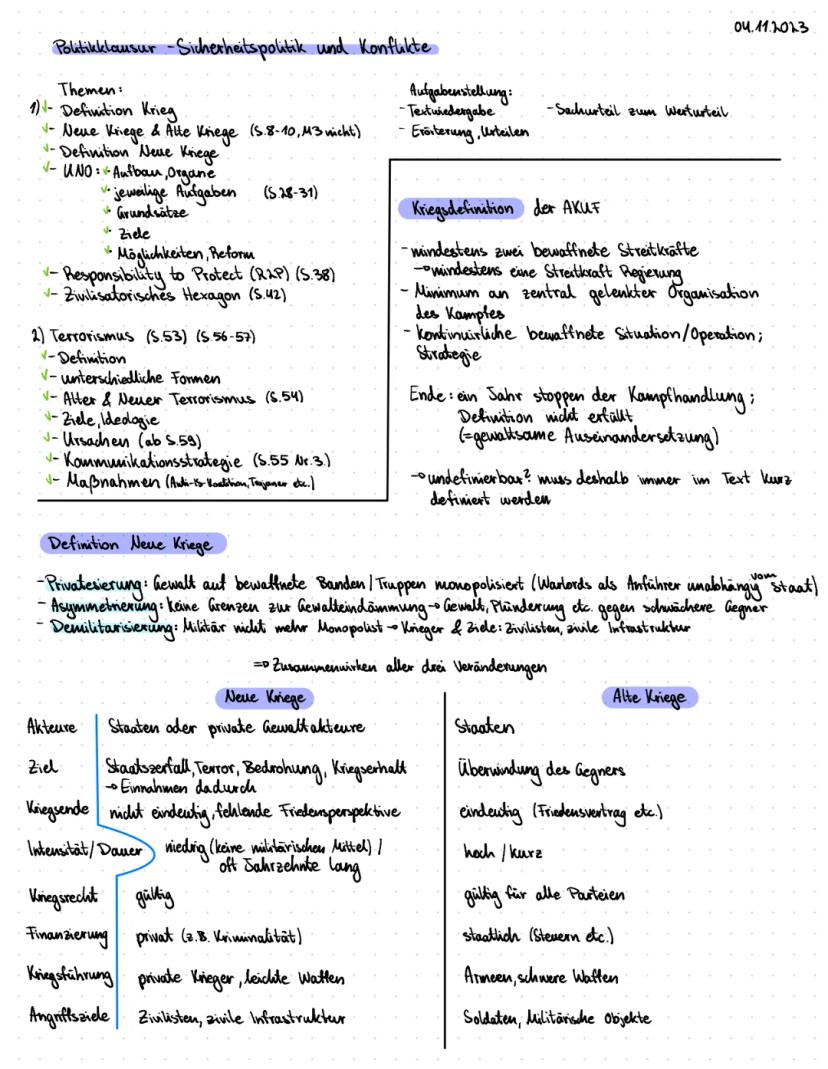 04.11.2023
Politikklausur - Sicherheitspolitik und Konflikte
Themen:
1) - Definition Krieg
- Neue Kriege & Alte Kriege (S.8-10, M3 nicht)
- Definition Neue Kriege
- UNO: Aufbau, Organe
jeweilige Aufgaben (S.28-31)
Grundsätze
Ziele
Möglichkeiten, Reform
- Responsibility to Protect (R2P) (S.38)
- Zivilisatorisches Hexagon (S.42)
2) Terrorismus (S.53) (S.56-57)
- Definition
- unterschiedliche Formen
- Alter & Neuer Terrorismus (S.54)
- Ziele, Ideologie
- Ursachen (ab S.59)
- Kommunikationsstrategie (S.55 Nr.3.)
- Maßnahmen (Anti-Is-Koalition, Trojaner etc.)
Aufgabenstellung:
- Textwiedergabe - Sachurteil zum Werturteil
- Erörterung, Urteilen
Kriegsdefinition der AKUF
- mindestens zwei bewaffnete Streitkräfte
→ mindestens eine Streitkraft Regierung
- Minimum an zentral gelenkter Organisation
des Kampfes
- Kontinuirliche bewaffnete Situation/Operation;
Strategie
Ende: ein Jahr stoppen der Kampfhandlung;
Definition nicht erfüllt
(=gewaltsame Auseinandersetzung)
→ undefinierbar? muss deshalb immer im Text kurz
definiert werden
Definition Neue Kriege
- Privatesierung: Gewalt auf bewaffnete Banden/Truppen monopolisiert (Warlords als Anführer unabhängig vom Staat)
- Asymmetrierung: keine Grenzen zur Gewalteindämmung → Gewalt, Plünderung etc. gegen schwächere Gegner
- Demilitarisierung: Militär nicht mehr Monopolist → Krieger & Ziele: Zivilisten, zivile Infrastruktur
⇒ Zusammenwirken aller drei Veränderungen
Neue Kriege Alte Kriege
Akteure Staaten oder private Gewaltakteure Staaten
Ziel Staatszerfall, Terror, Bedrohung, Kriegserhalt Überwindung des Gegners
→ Einnahmen dadurch
Kriegsende nicht eindeutig, fehlende Friedensperspektive eindeutig (Friedensvertrag etc.)
Intensität/Dauer niedrig (keine militärischen Mittel) / hoch / kurz
oft Jahrzehnte lang
Kriegsrecht gültig gültig für alle Parteien
Finanzierung privat (z.B. Kriminalität) staatlich (Steuern etc.)
Kriegsführung private Krieger, leichte Waffen Armeen, schwere Waffen
Angriffsziele Zivilisten, zivile Infrastruktur Soldaten, Militärische Objekte